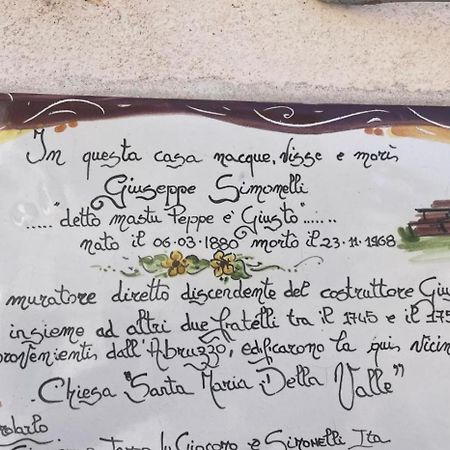 In questa casa nacque, visse e morìs
Giuseppe Simonelli
....."detto mastu Peppe e' Giusto"......
nato il 06.03.1880 mortò il 23.11.1968
muratore diretto discendente del costruttore Giu
insieme ad altri due fratelli tra il 1745 e il 175
provenienti dall'Abruzzo, edificarono la qui vicin
Chiesa "Santa Maria Della Valle"
Giacomo e Simonelli Ita